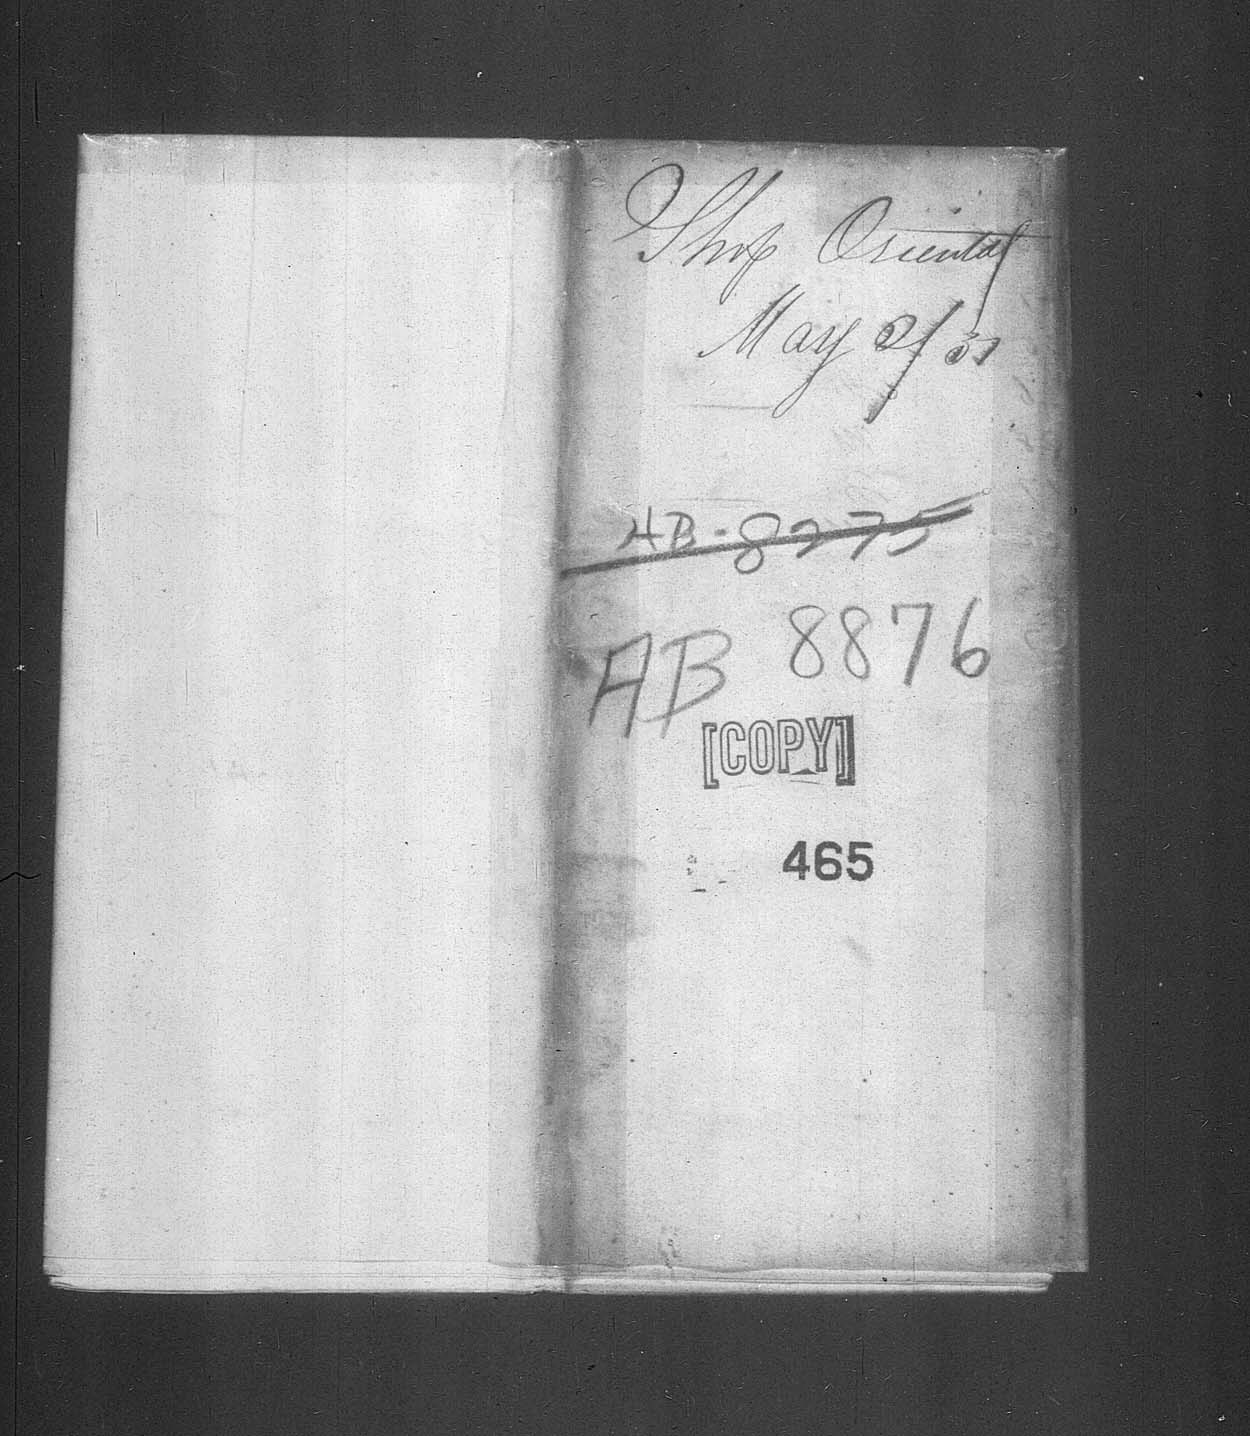 Ship Oriental
May 2/31
AB-8275
AB 8876
[COPY]
465